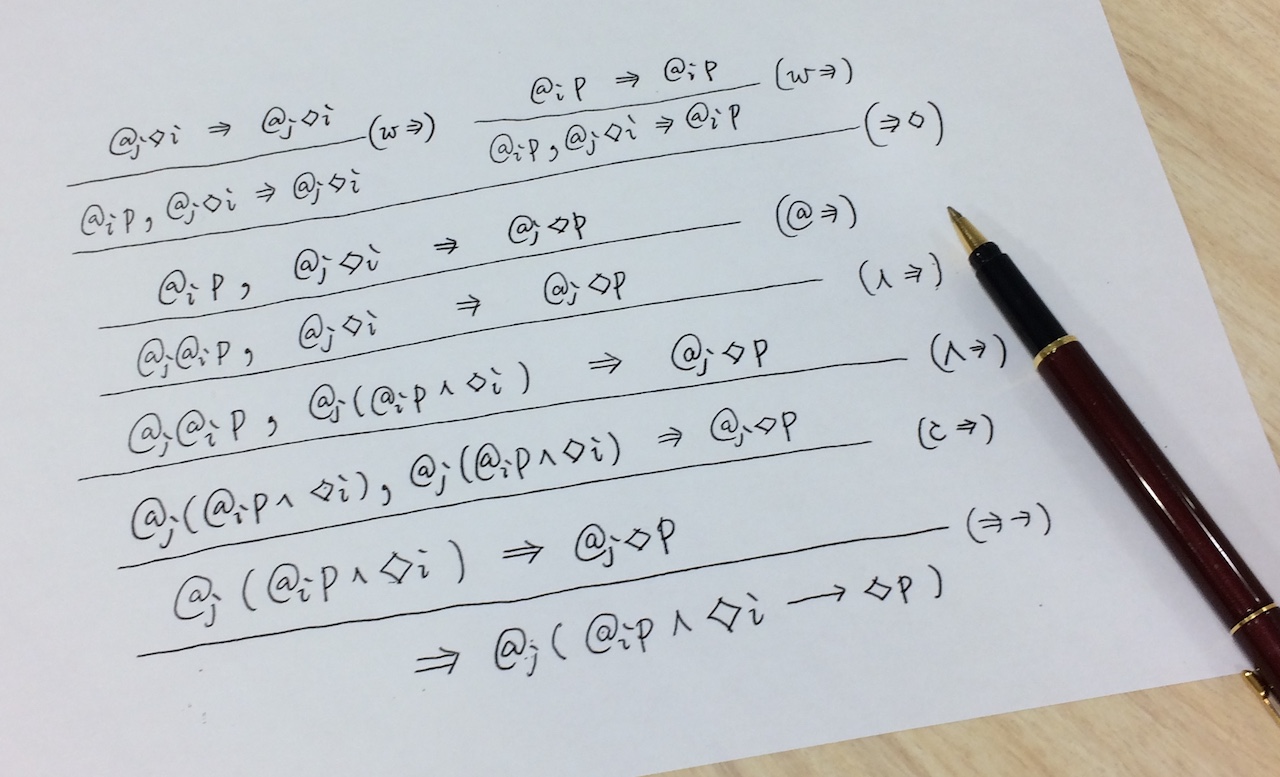 @ⱼ◇i ⇒ @ⱼ◇i (w⇒) @ᵢp ⇒ @ᵢp (w⇒)
@ᵢp, @ⱼ◇i ⇒ @ⱼ◇i @ᵢp, @ⱼ◇i ⇒ @ᵢp (⇒◇)
@ᵢp, @ⱼ◇i ⇒ @ⱼ◇p (@⇒)
@ⱼ@ᵢp, @ⱼ◇i ⇒ @ⱼ◇p (∧⇒)
@ⱼ@ᵢp, @ⱼ(@ᵢp∧◇i) ⇒ @ⱼ◇p (∧⇒)
@ⱼ(@ᵢp∧◇i), @ⱼ(@ᵢp∧◇i) ⇒ @ⱼ◇p (c⇒)
@ⱼ(@ᵢp∧◇i) ⇒ @ⱼ◇p (⇒→)
⇒ @ⱼ(@ᵢp∧◇i → ◇p)